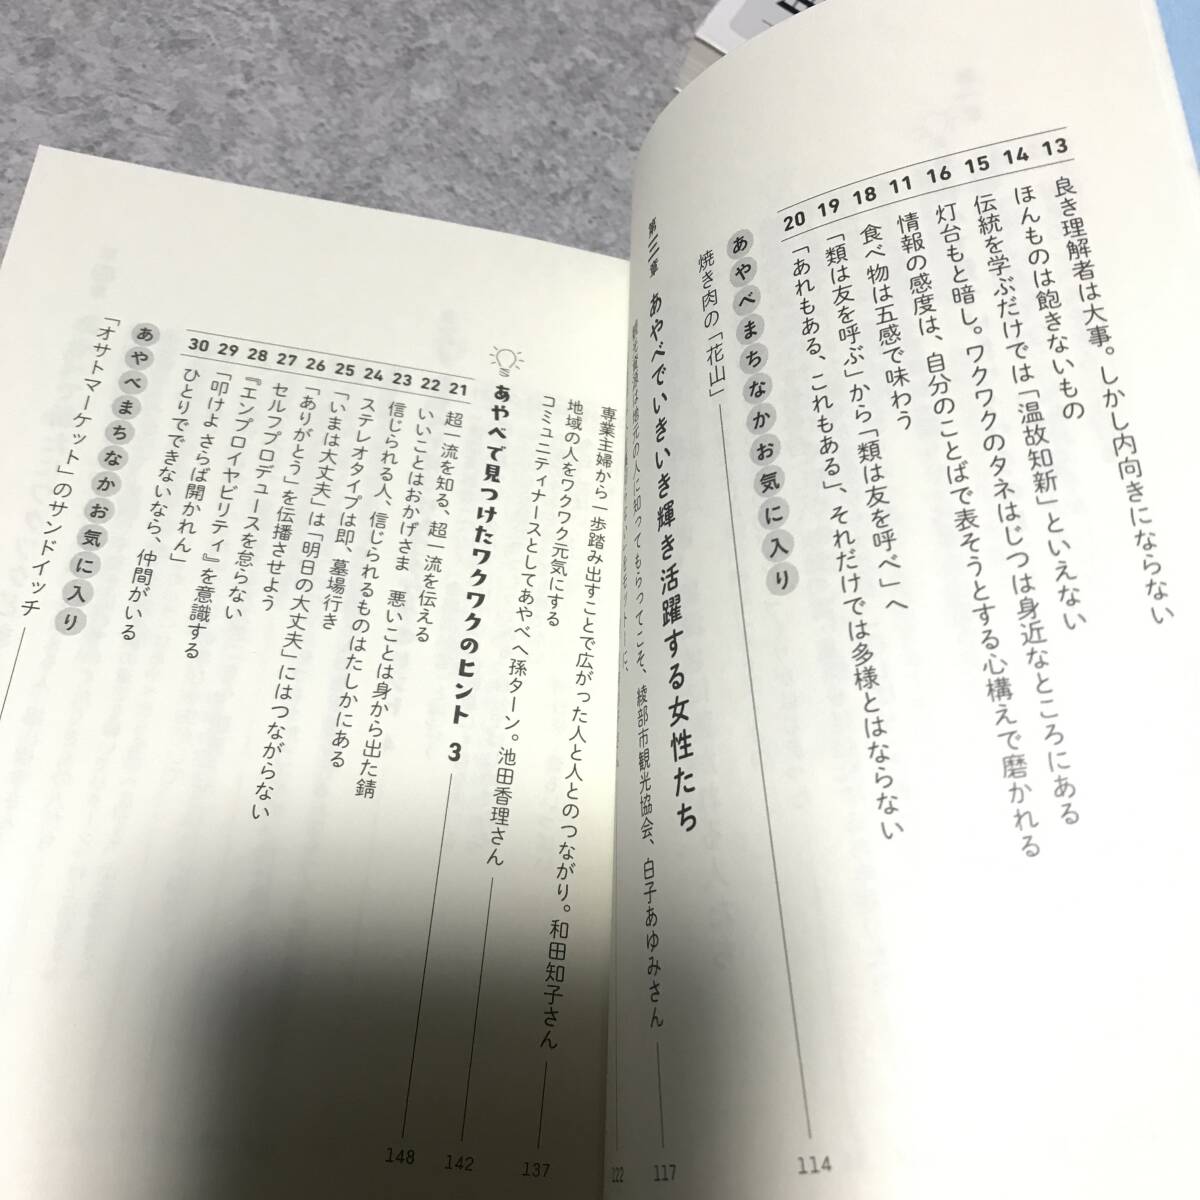 13 良き理解者は大事。しかし内向きにならない
14 ほんものは飽きないもの
15 伝統を学ぶだけでは「温故知新」といえない
16 灯台もと暗し。ワクワクのタネはじつは身近なところにある
11 情報の感度は、自分のことばで表そうとする心構えで磨かれる
18 食べ物は五感で味わう
19 「類は友を呼ぶ」から「類は友を呼べ」へ
20 「あれもある、これもある」、それだけでは多様とはならない
あやべまちなかお気に入り
焼き肉の「花山」 114
第三章 あやべでいきいき輝き活躍する女性たち 117
観光資源は地元の人に知ってもらってこそ、綾部市観光協会、白子あゆみさん
122
専業主婦から一歩踏み出すことで広がった人と人とのつながり。和田知子さん 137
地域の人をワクワク元気にする
コミュニティナースとしてあやべへ孫ターン。池田香理さん 142
あやべで見つけたワクワクのヒント 3 148
21 超一流を知る、超一流を伝える
22 いいことはおかげさま 悪いことは身から出た錆
23 信じられる人、信じられるものはたしかにある
24 ステレオタイプは即、墓場行き
25 「いまは大丈夫」は「明日の大丈夫」にはつながらない
26 「ありがとう」を伝播させよう
27 セルフプロデュースを怠らない
28 『エンプロイヤビリティ』を意識する
29 「叩けよ さらば開かれん」
30 ひとりでできないなら、仲間がいる
あやべまちなかお気に入り
「オサトマーケット」のサンドイッチ